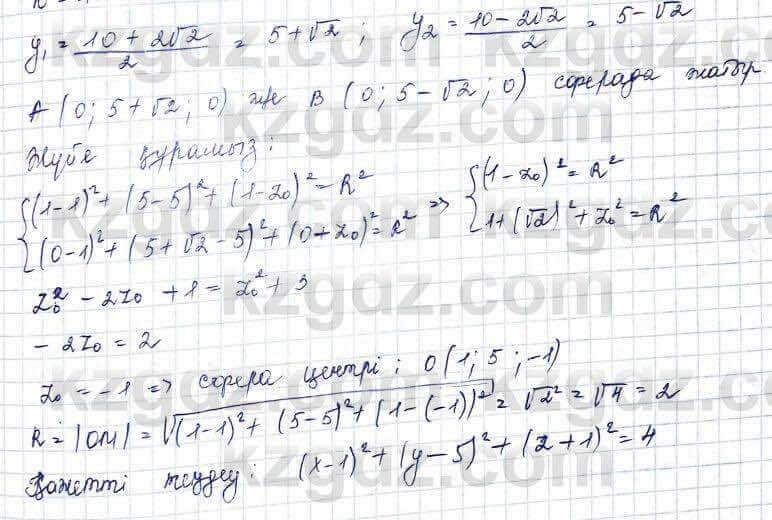 y₁ = (10 + 2√2)/2 = 5 + √2 ; y₂ = (10 − 2√2)/2 = 5 − √2
A (0; 5 + √2; 0) және B (0; 5 − √2; 0) сферада жатыр
Жүйе құрамыз:
{(1−1)² + (5−5)² + (1−z₀)² = R² => {(1−z₀)² = R²
(0−1)² + (5 + √2 − 5)² + (0 + z₀)² = R² 1 + (√2)² + z₀² = R²
z₀² − 2z₀ + 1 = z₀² + 3
− 2z₀ = 2
z₀ = −1 => сфера центрі: O (1; 5; −1)
R = |OM| = √((1−1)² + (5−5)² + (1−(−1))²) = √2² = √4 = 2
Қажетті теңдеу: (x−1)² + (y−5)² + (z+1)² = 4
kzgdz.com